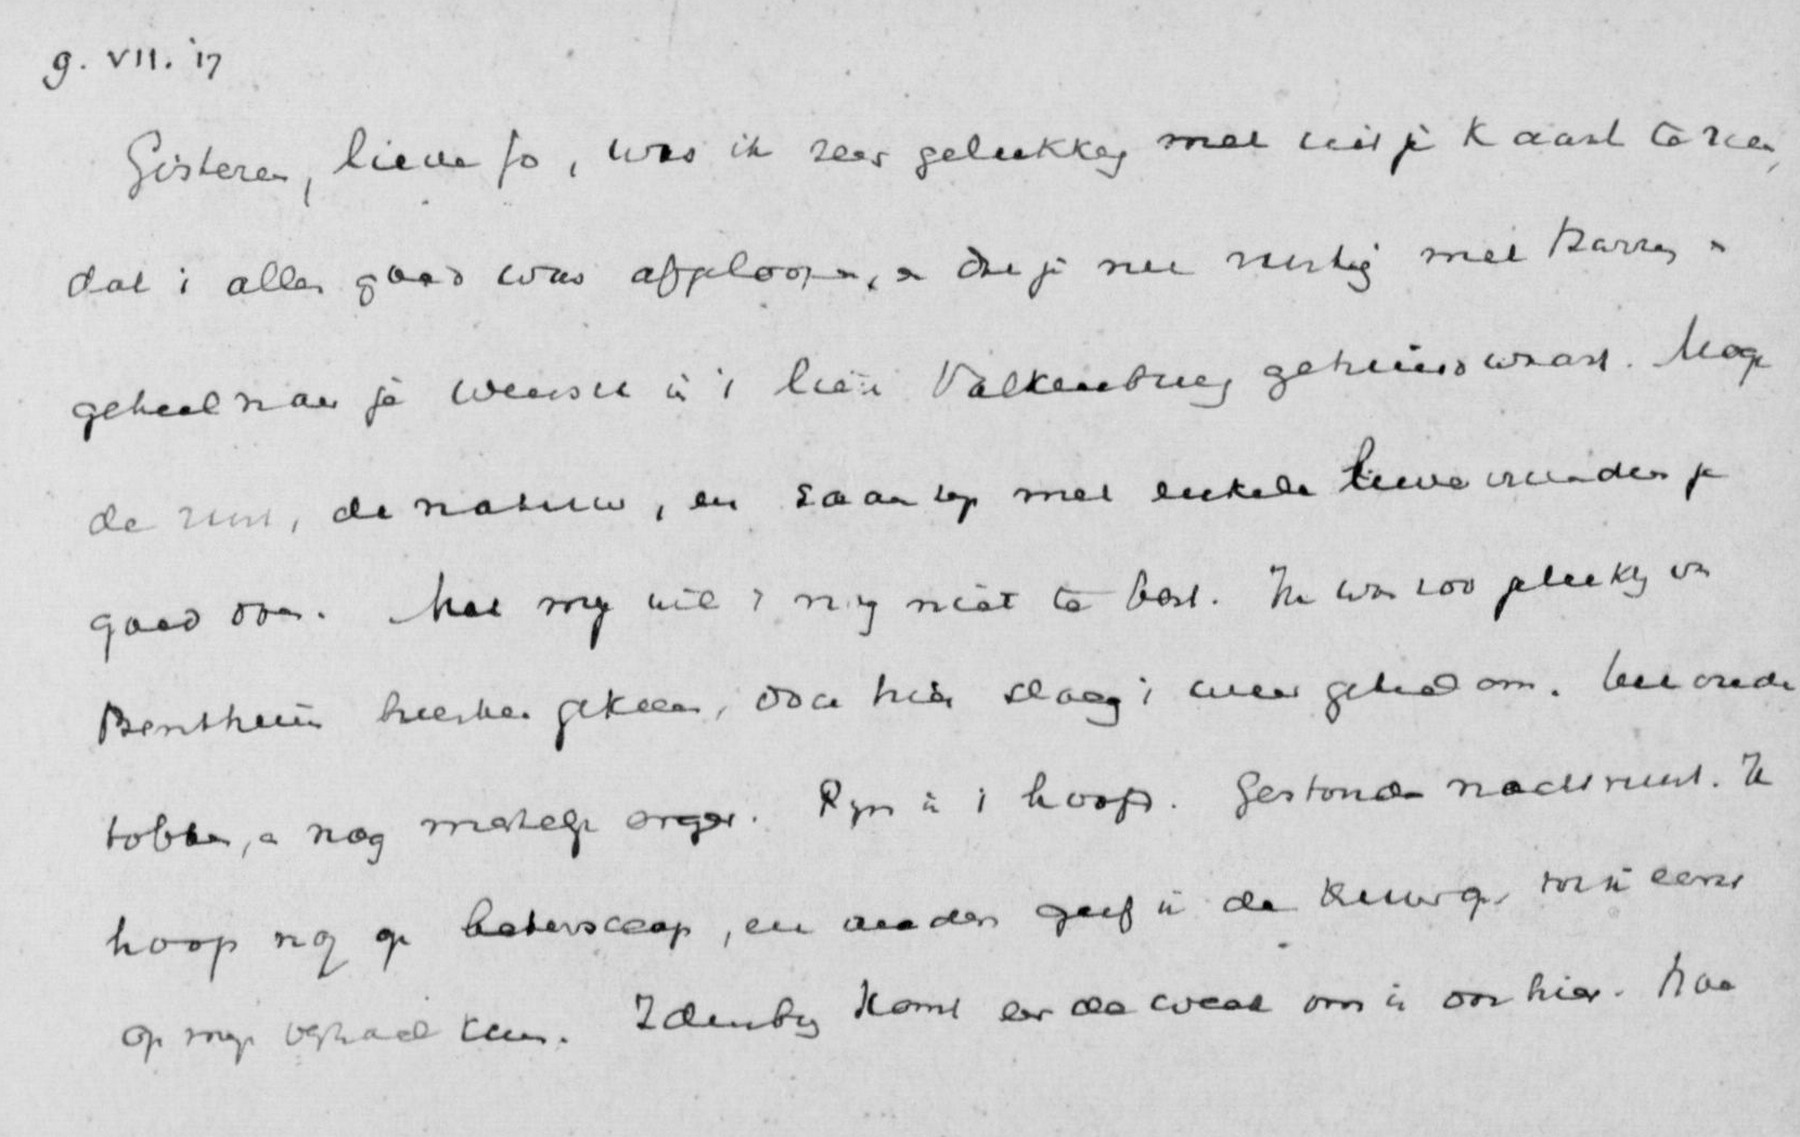 9. VII. '17
Gisteren, lieve Jo, was ik zeer gelukkig met uit je kaart te zien,
dat 't alles goed was afgeloopen, en dat je nu rustig met Harry en
geheel naar je wensch in 't lieve Valkenburg gehuisd waart. Moge
de rust, de natuur, en saam zijn met enkele lieve vrienden je
goed doen. Met mij wil 't nog niet te best. Ik was zoo gelukkig van
Bentheim hierheen gekeerd, doch hier sloeg 't weer geheel om. Het oude
tobben, en nog erger. Pijn in 't hoofd. Gestoorde nachtrust. Ik
hoop nog op beterschap, en anders geef ik de kuur op, tot ik eerst
op mijn verhaal kom. Idenburg komt eer de week om is ook hier.